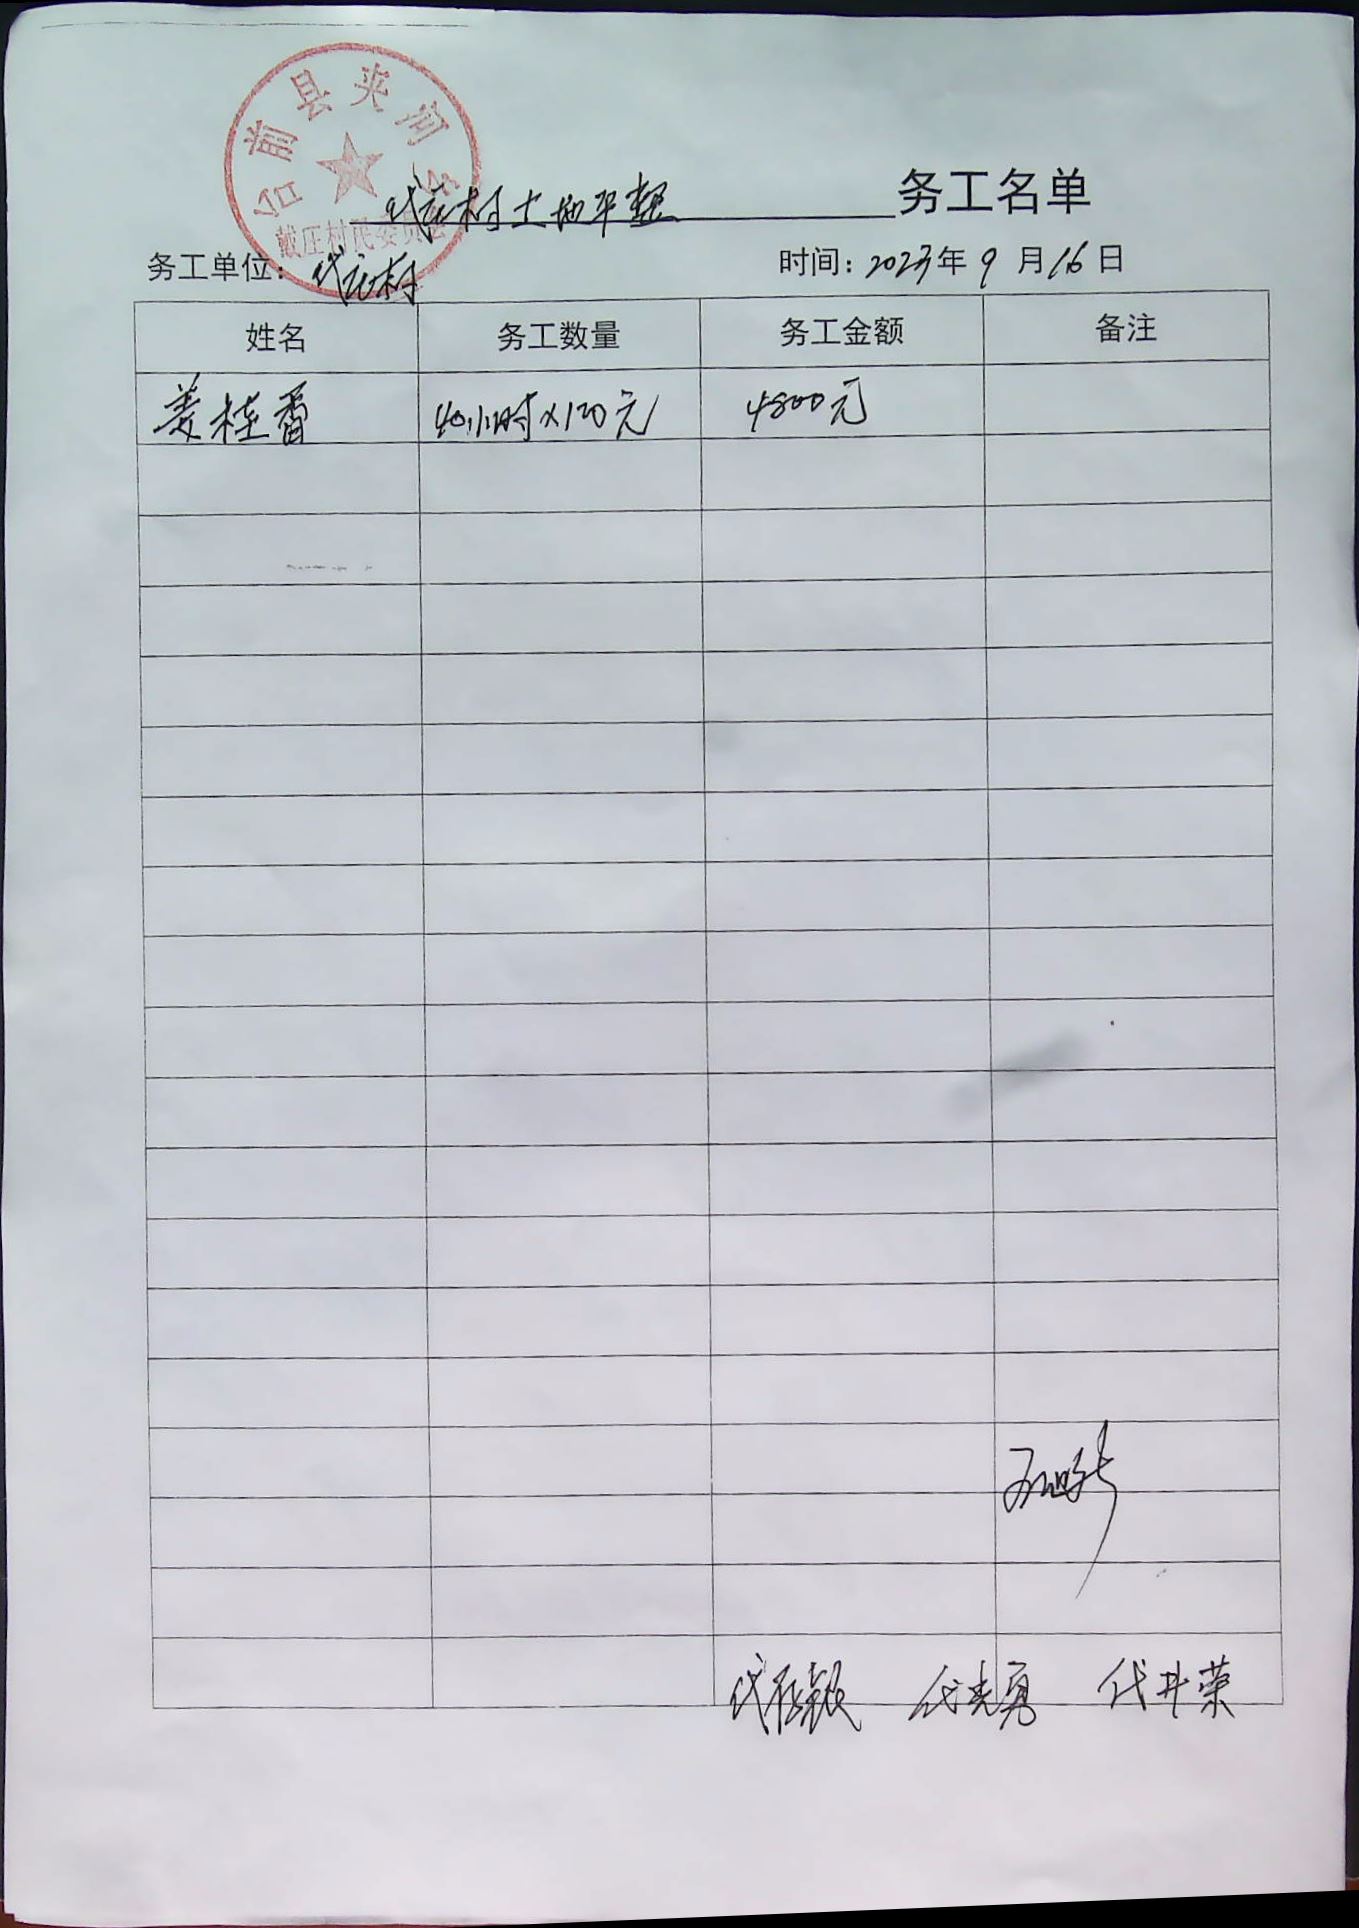 台前县夹河乡
戴庄村民委员会
代庄村土地平整务工名单
务工单位：代庄村 时间：2023年9月16日
姓名 务工数量 务工金额 备注
姜桂香 40小时×120元 4800元
代光勇 代井荣